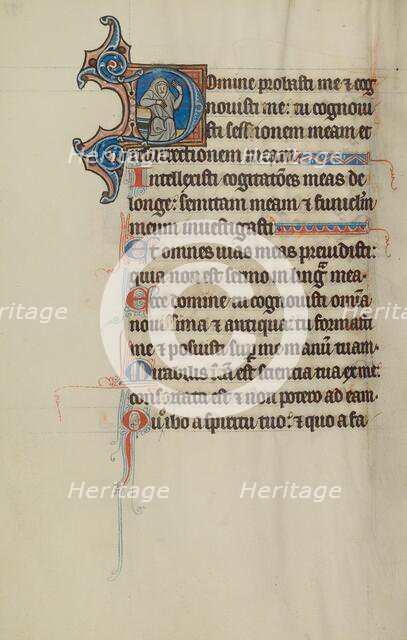 Domine probasti me & cog
nouisti me: tu cognoui
sti sessionem meam et
resurrectionem meam
Intellexisti cogitatōes meas de
longe: semitam meam & funiclm̄
meum inuestigasti
Et omnes uias meas preuidisti:
quia non est sermo in lingᵃ mea.
Ecce domine tu cognouisti om̄ia
nouissima & antiqua: tu formasti
me & posuisti supͬ me manū tuam.
Mirabilis fc̄a est sciencia tua ex me:
confortata est & non potero ad eam.
Quo ibo a spiritu tuo: & quo a fa
Heritage
Heritage
Heritage
Heritage
Heritage
Heritage